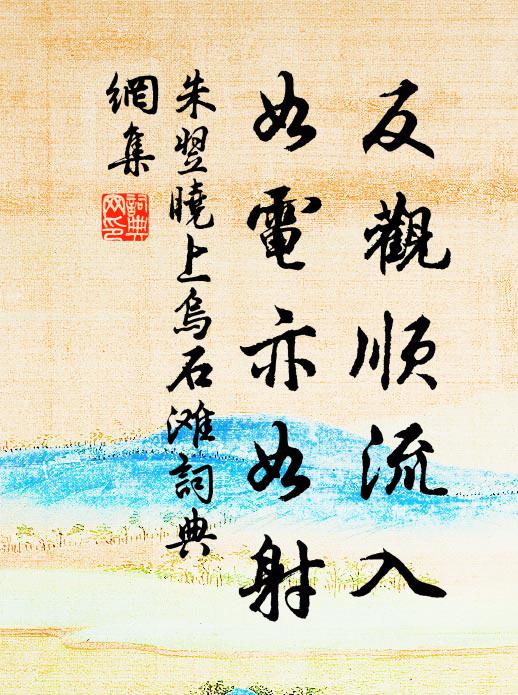 反觀順流入
如電亦如射
朱翌曉上烏石滩詞典
網集
詞典
网印